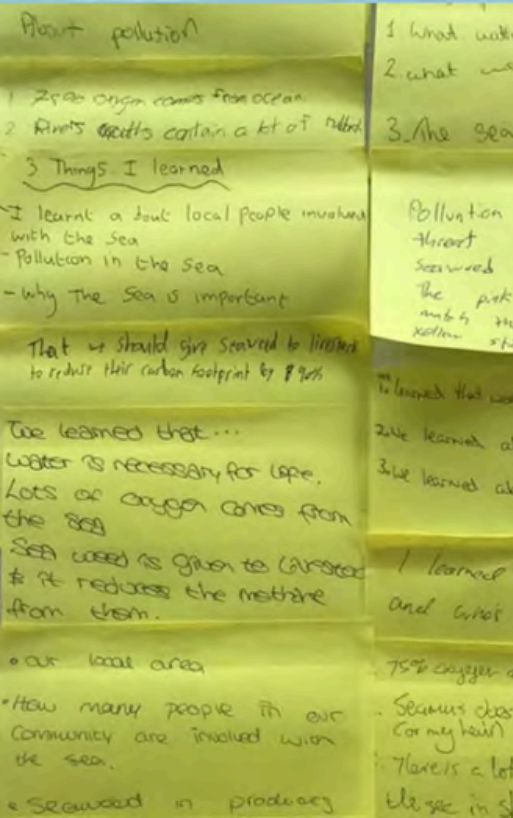 About pollution
1 75% oxygen comes from ocean.
2 Rivers contain a lot of
3 Things I learned
- I learnt about local people involved
with the sea
- Pollution in the sea
- Why The Sea is important
That we should give seaweed to livestock
to reduse their carbon footprint by 90%
We learned that...
Water is necessary for life.
Lots of oxygen comes from
the sea
Sea weed is given to livestock
& it reduces the methine
from them.
• our local area
• How many people in our
community are involved with
the sea.
• Seaweed in products
1. What
2. what
3. The sea
Pollution
threat
Seaweed
The pink
match the
yellow
1. I learned that
2. We learned
3. We learned
I learned
and
. 75% oxygen
. Seamus does
for my
. There is a lot
the sea in